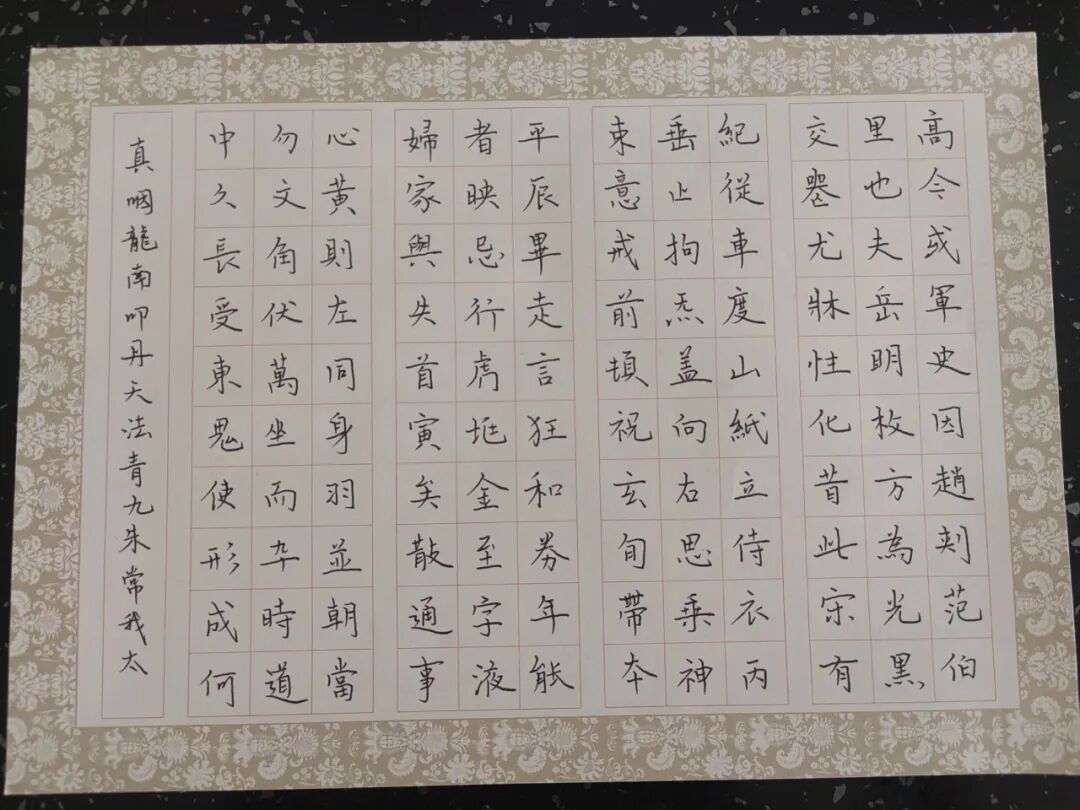 高令或軍史因趙刾范伯
里也夫岳明枚方為光黑
交尤牀性化昔此宋有
紀從車度山紙立侍衣丙
垂止拘炁盖向右思乘神
束意戒前頃祝玄旬帶本
平辰畢走言狂和券年能
者映忌行虎金至字液
婦家與失首寅矣散通事
心黃則左同身羽並朝當
勿文角伏萬坐而卒時道
中久長受東鬼使形成何
真咽龍南叩丹天法青九朱常我太